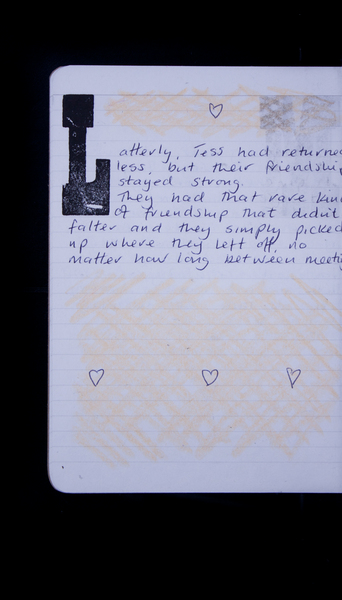 Latterly, Tess had returned
less, but their friendship
stayed strong.
They had that rare kind
of friendship that didn't
falter and they simply picked
up where they left off, no
matter how long between meeti